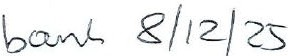 bank 8/12/25